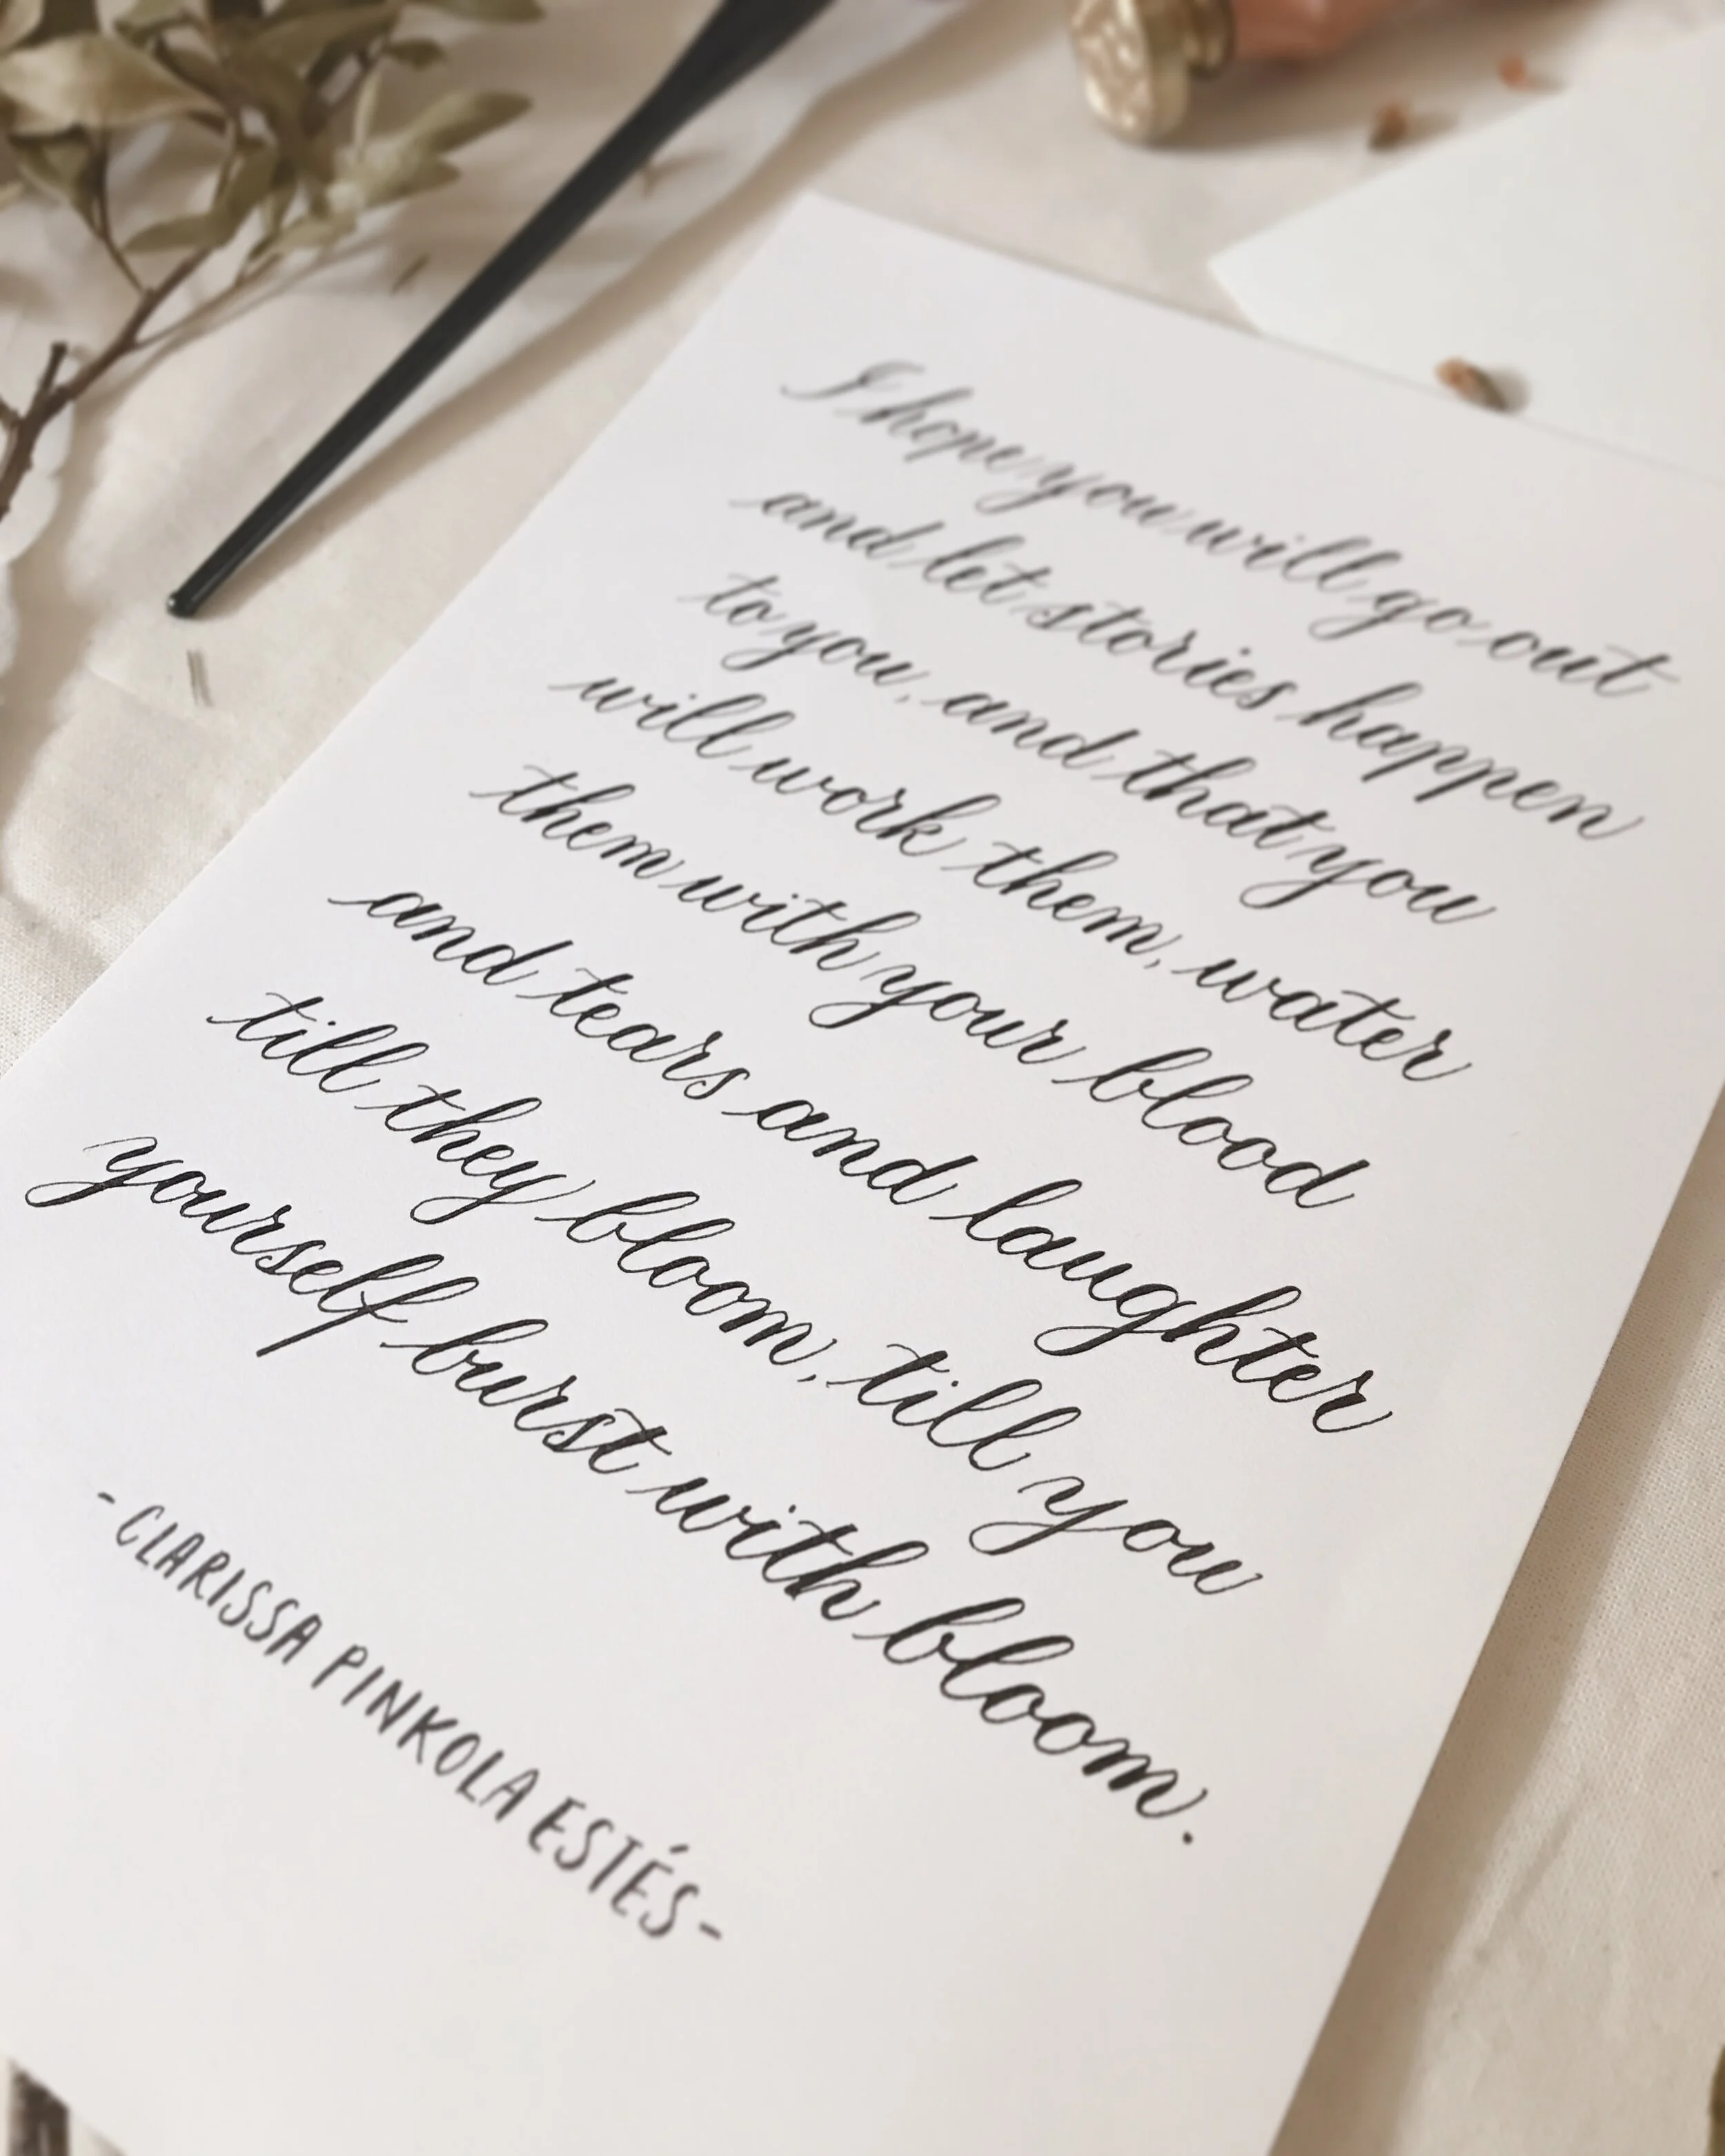 I hope you will go out
and let stories happen
to you, and that you
will work them, water
them with your blood
and tears and laughter
till they bloom, till you
yourself burst with bloom.
-CLARISSA PINKOLA ESTÉS-